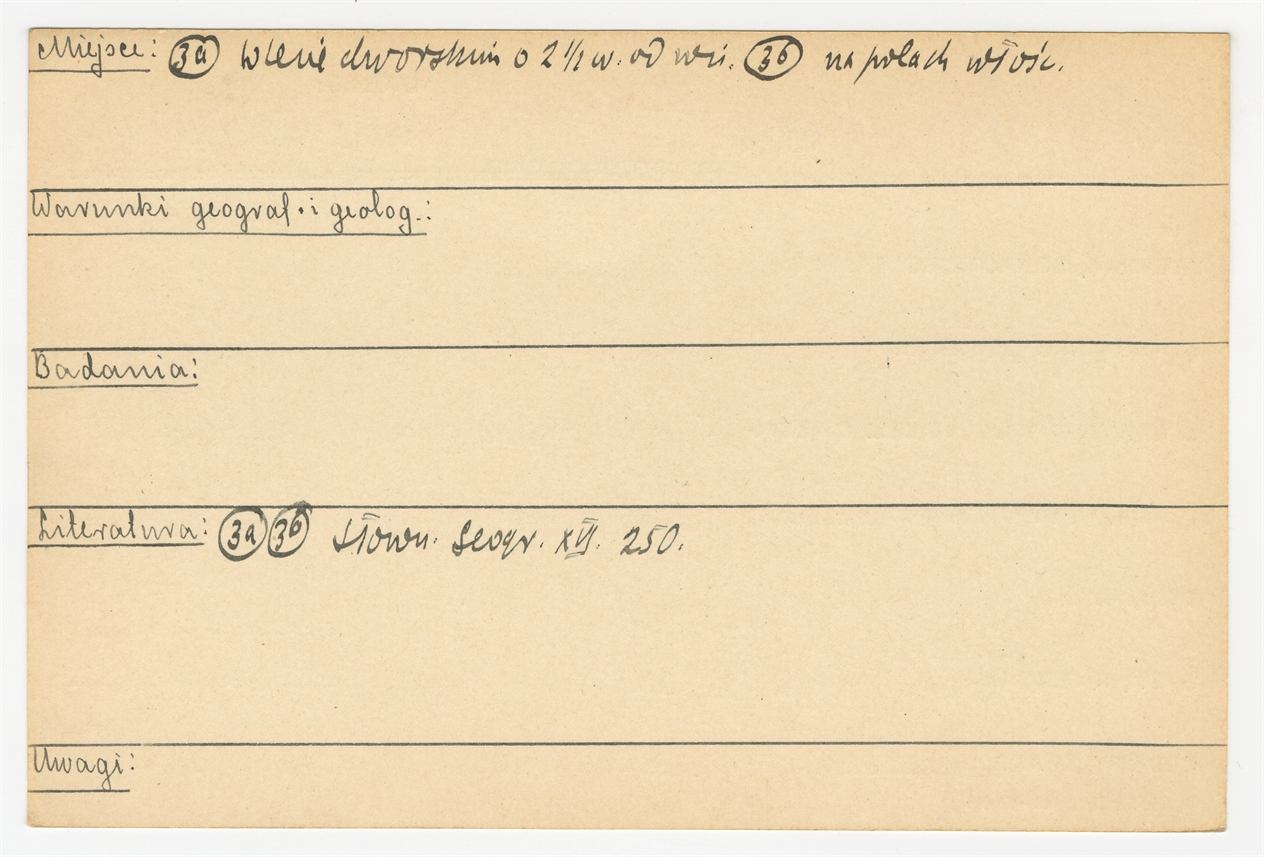 Miejsce: 3a w lesie dworskim o 2 1/2 w. od wsi. 3b na polach włośc.
Warunki geograf. i geolog.:
Badania:
Literatura: 3a 3b Słown. Geogr. XII. 250.
Uwagi: